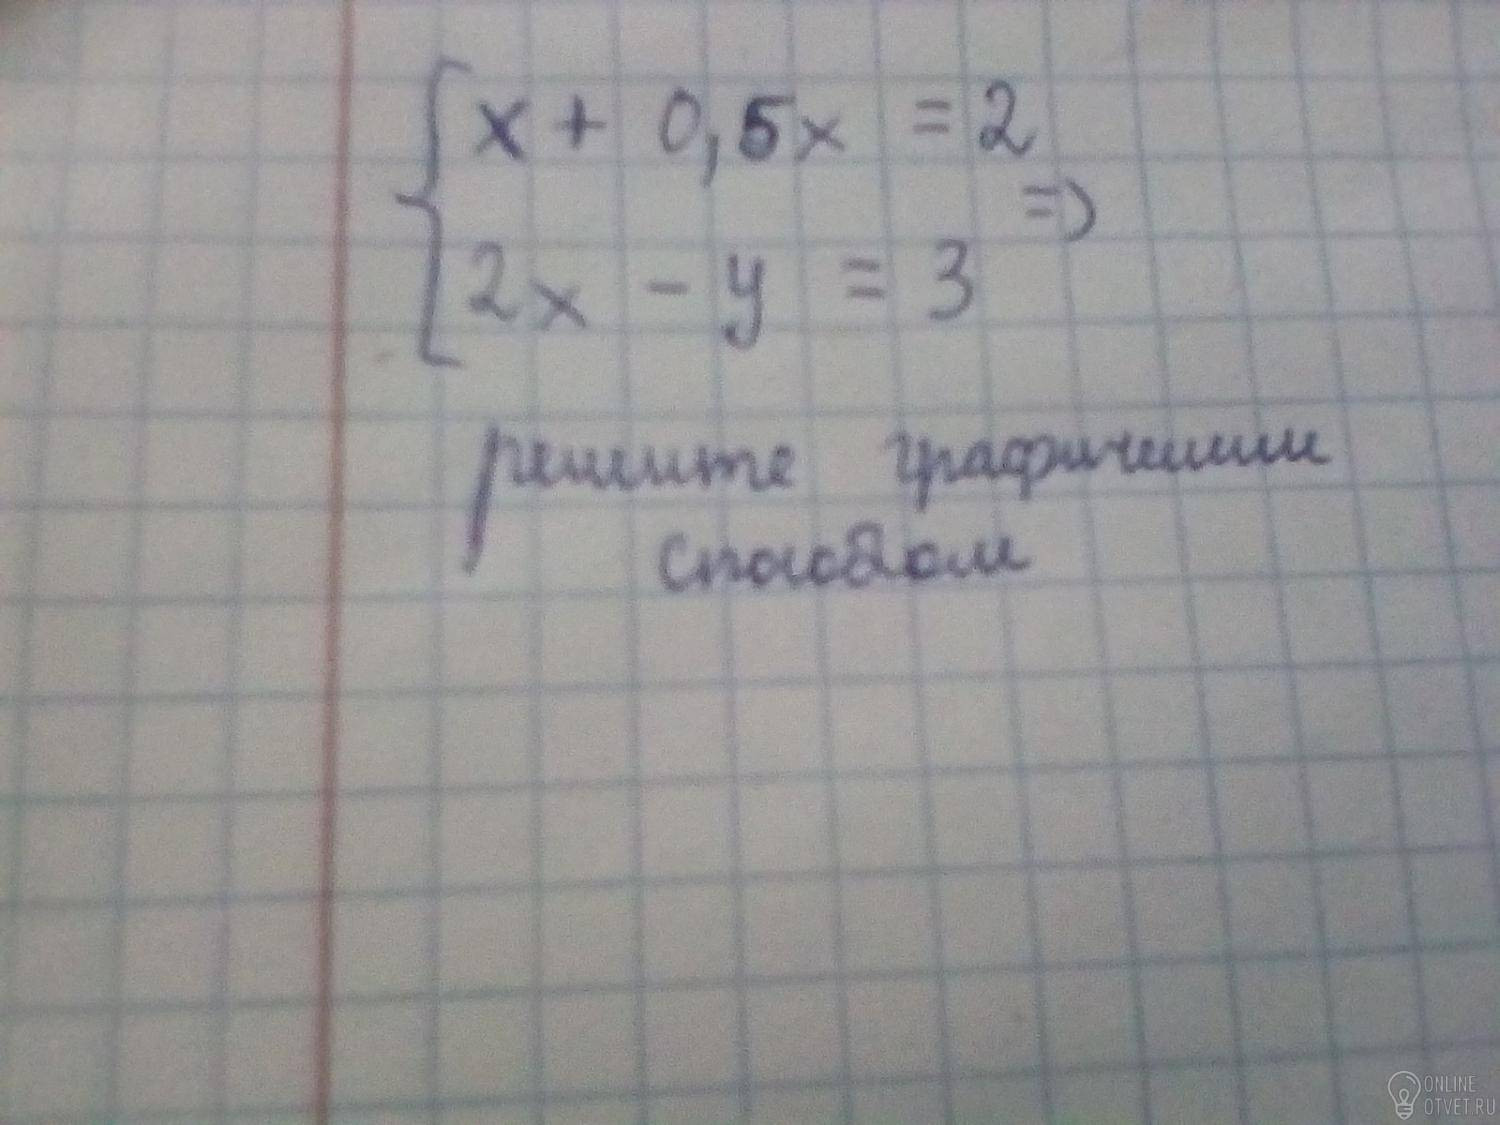 x + 0,5x = 2
2x - y = 3 =>
решите графичеким
способом
ONLINE
OTVET.RU